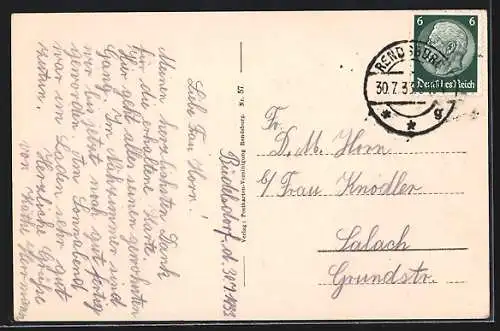 Büdelsdorf, d. 30.7.1933
Liebe Frau Horn!
Meinen herzlichsten Dank
für die erhaltene Karte.
Hier geht alles seinen gewohnten
Gang. Im Nähzimmer sind
wir bis jetzt noch gut fertig
geworden. Am Sonnabend
war im Laden sehr gut
zutun.
Herzliche Grüße
von Käthe Hermann
Verlag: Postkarten-Vereinigung Rendsburg. Nr. 57.
6 6
Deutsches Reich
RENDSBURG
30.7.33
* * g
Fr.
D. M. Horn
b/Frau Knödler
Salach
Grundstr.